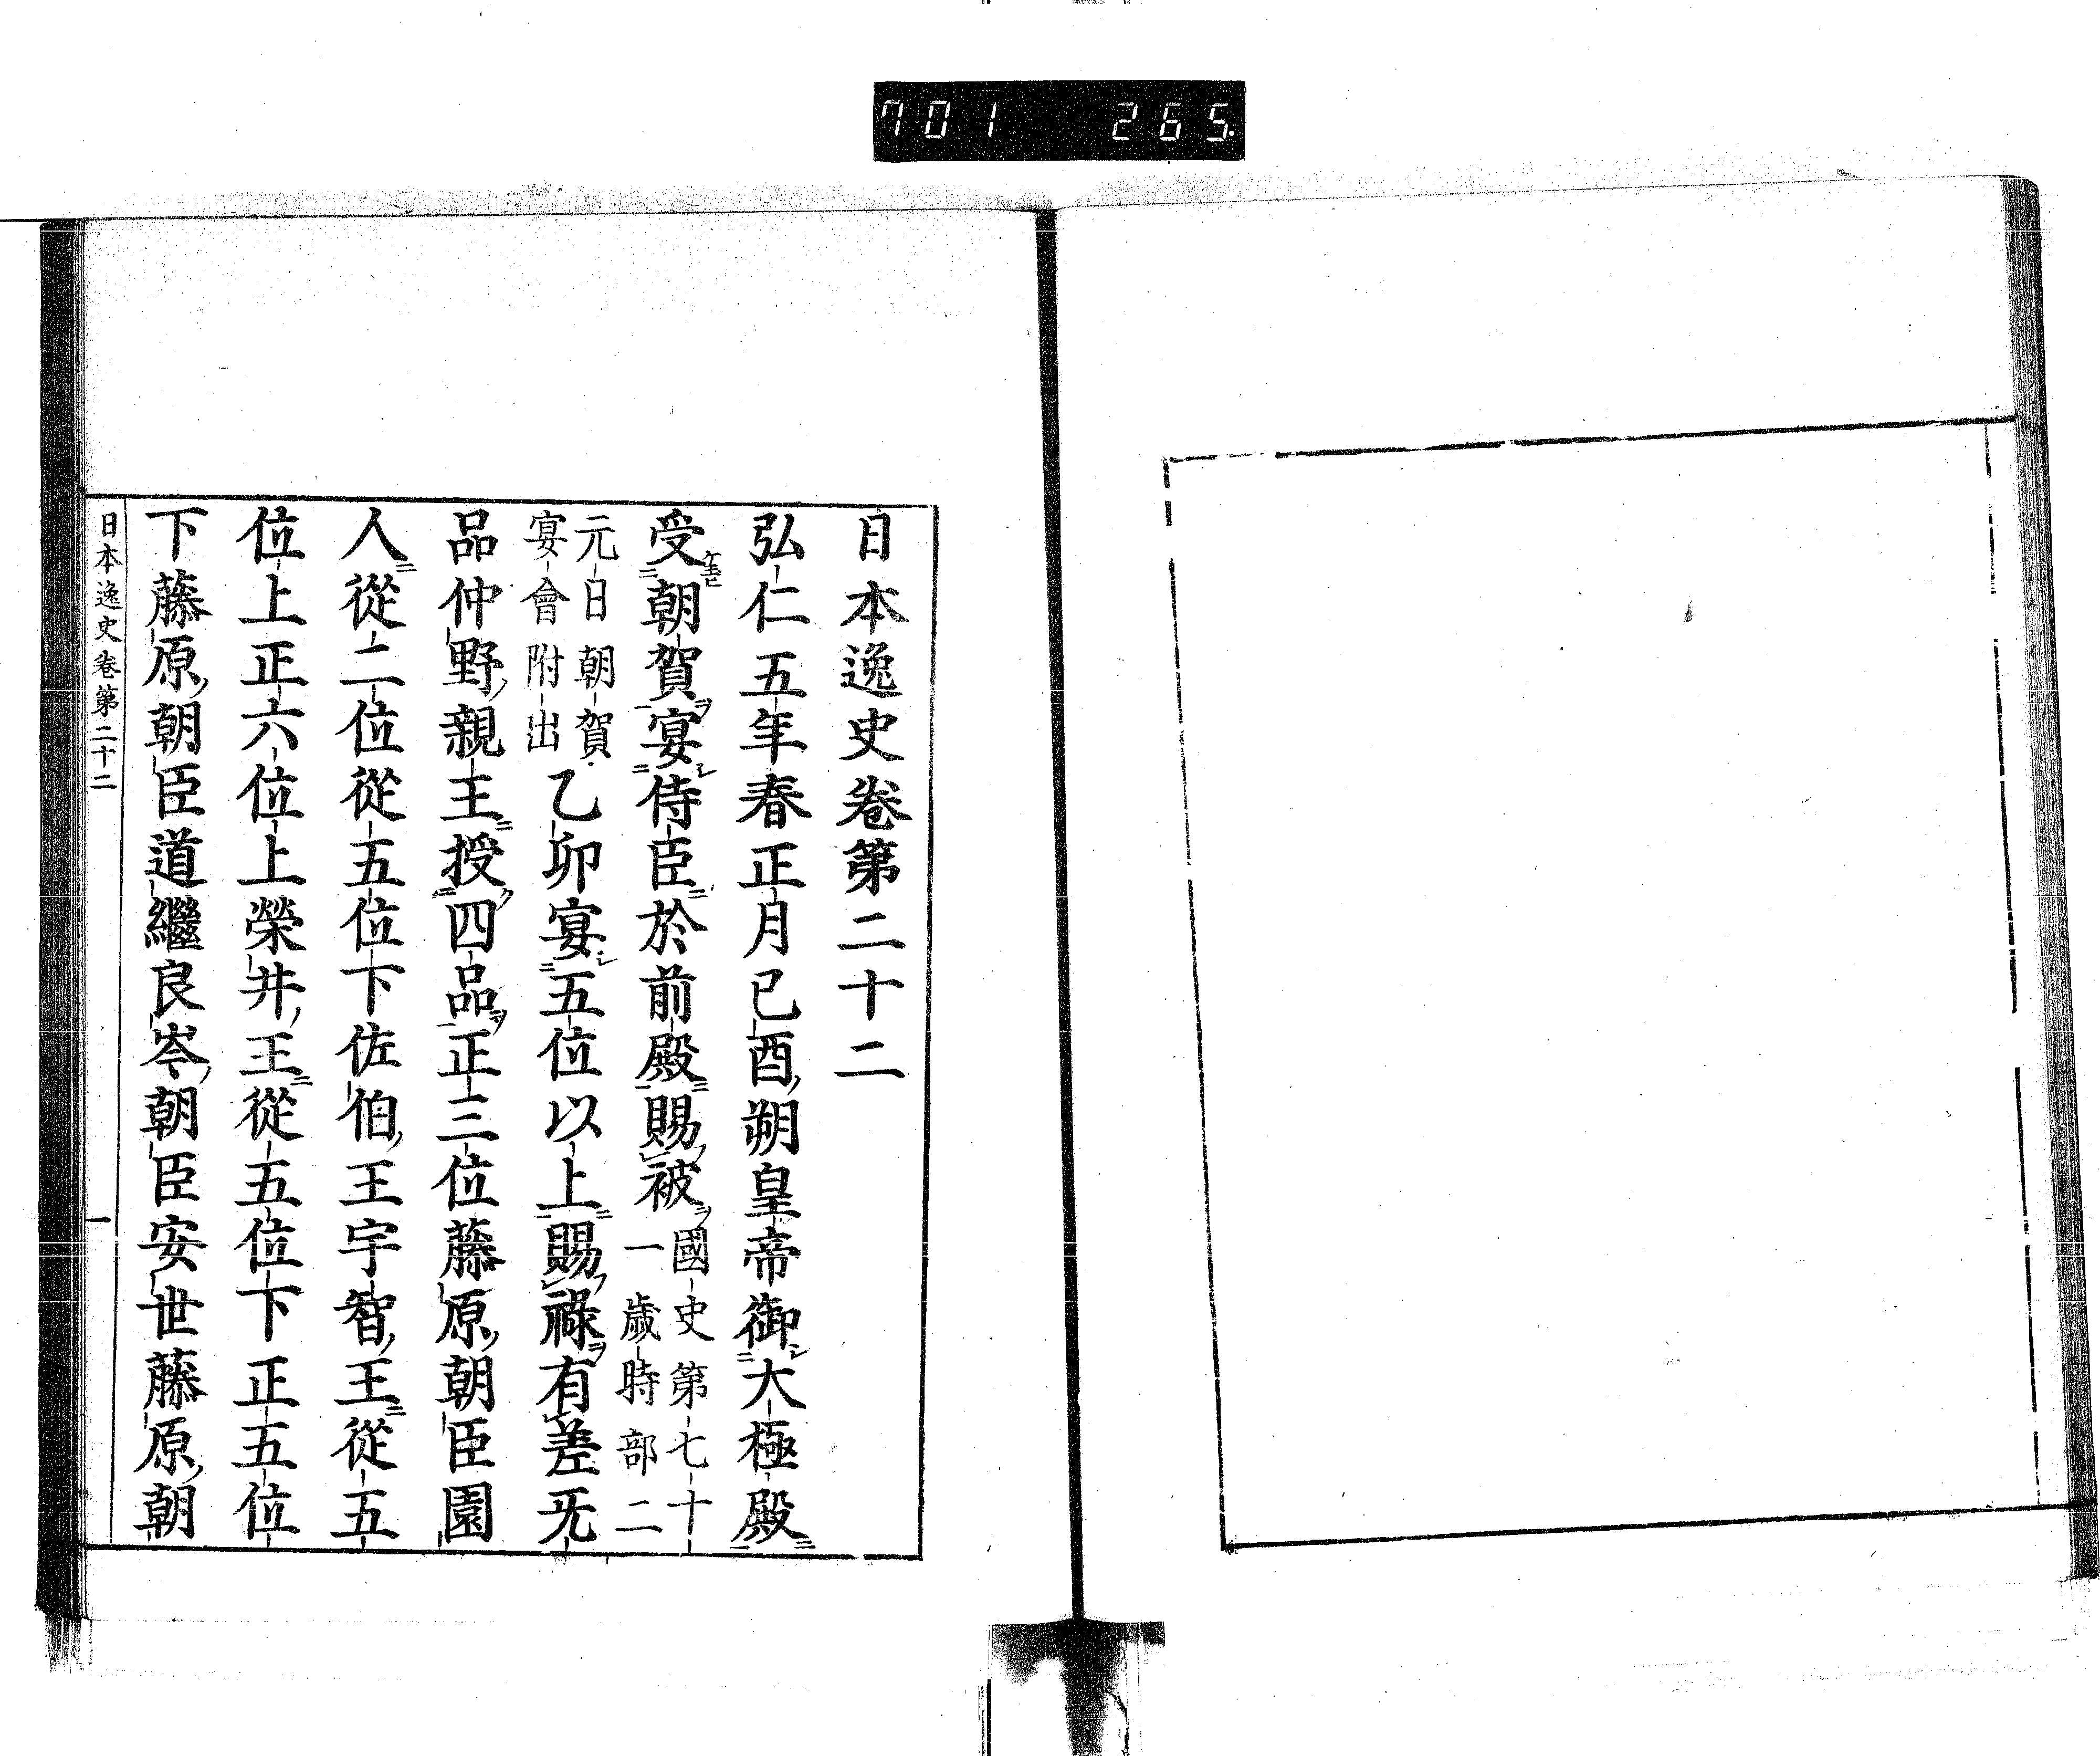 701 265
日本逸史卷第二十二
弘仁五年春正月已酉朔皇帝御大極殿
受朝賀宴侍臣於前殿賜被國史第七十
一歲時部二
元日朝賀
宴會附出
乙卯宴五位以上賜祿有差旡
品仲野親王授四品正三位藤原朝臣園
人從二位從五位下佐伯王宇智王從五
位上正六位上榮井王從五位下正五位
下藤原朝臣道繼良岑朝臣安世藤原朝
日本逸史卷第二十二
一